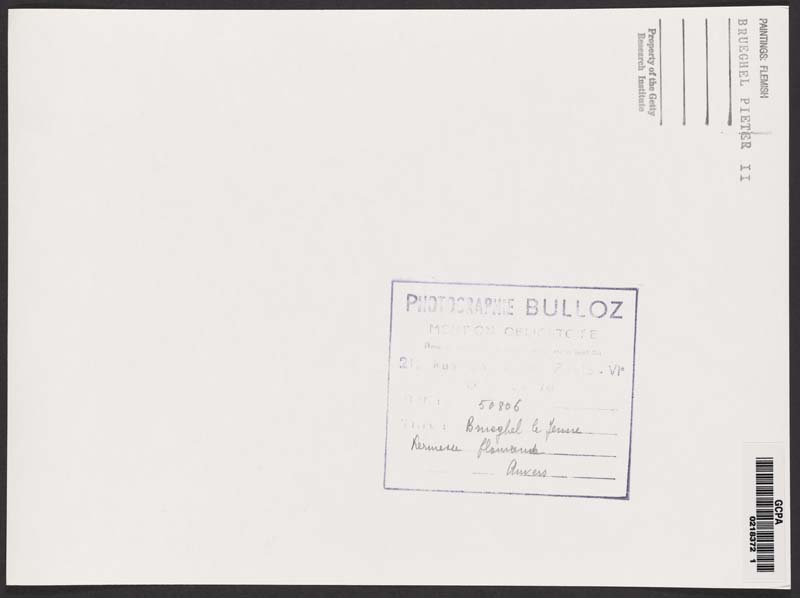 PAINTINGS: FLEMISH
BRUEGHEL PIETER II
Property of the Getty
Research Institute
PHOTOGRAPHIE BULLOZ
MENTION OBLIGATOIRE
21, - VIe
50806
TITRE: Brueghel le Jeune
Kermesse flamande
Anvers
GCPA
0218372 1